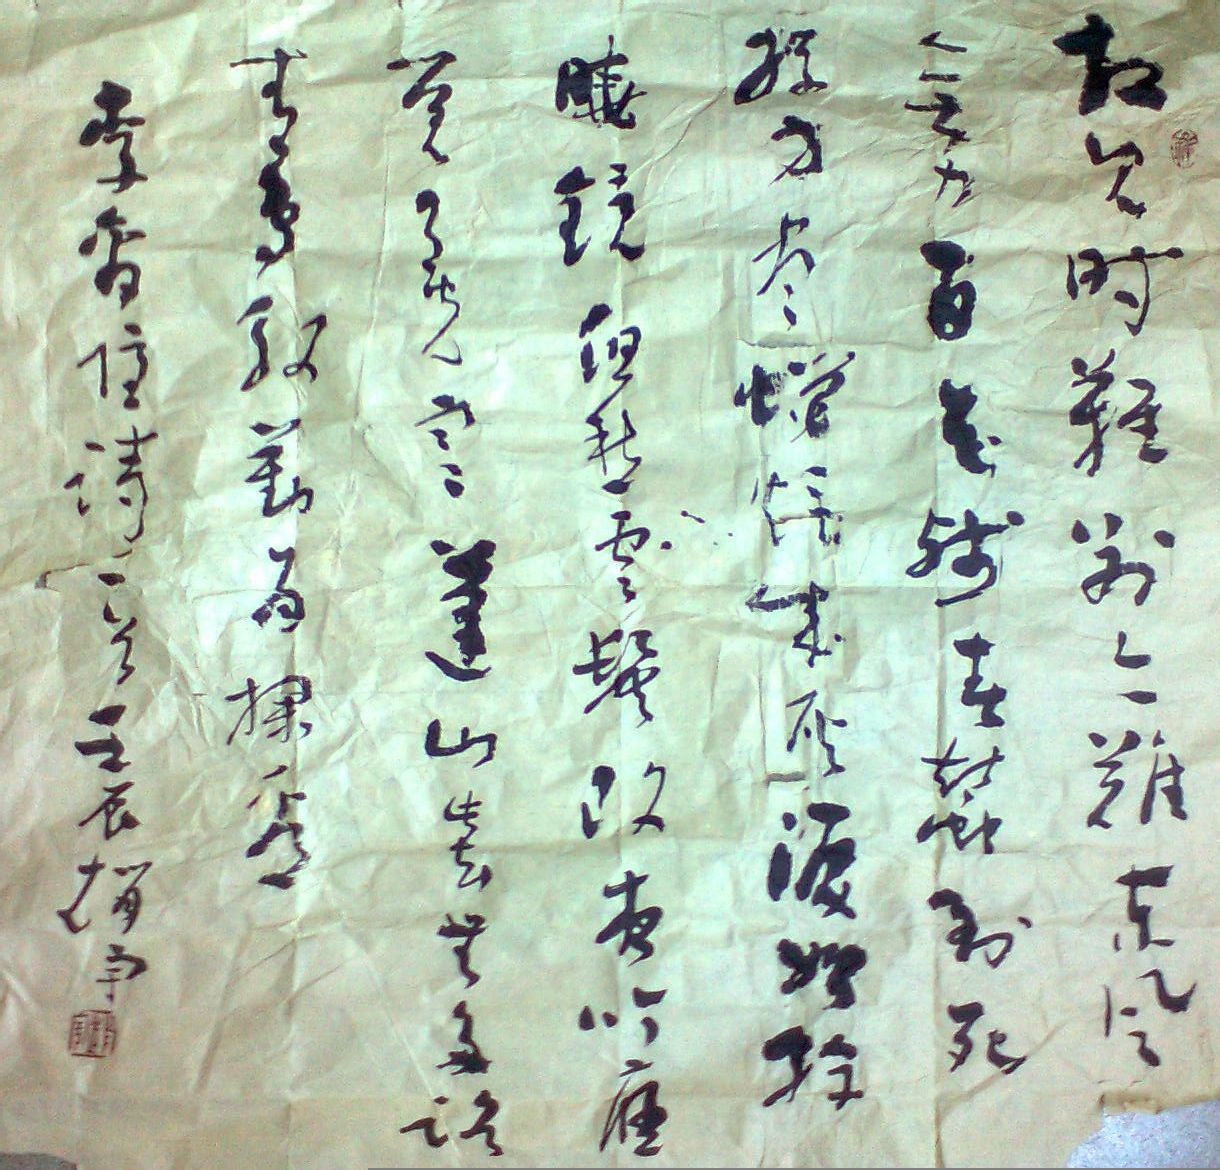 相见时難别亦難东风
无力百花残春蚕到死
丝方尽蜡炬成灰泪始干
晓镜但愁云鬓改夜吟应
觉月光寒蓬山此去無多路
青鸟殷勤为探看
李商隐诗一首壬辰